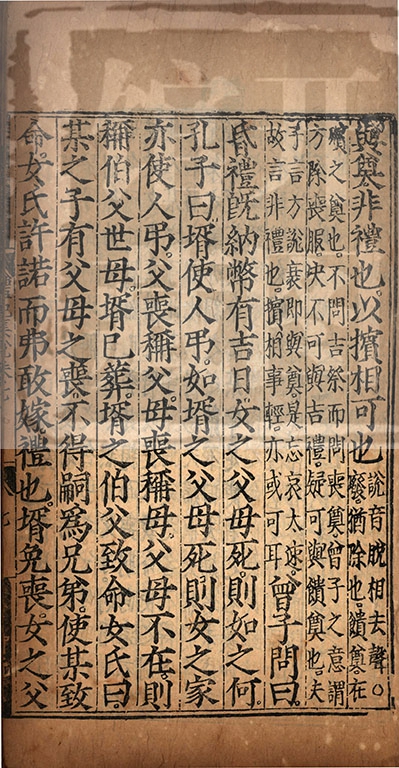 與奠非禮也以擯相可也
說音脫相去聲○
廢猶除也饋奠在
殯之奠也不問吉祭而問喪奠曾子之意謂
方除喪服决不可與吉禮疑可與饋奠也夫
子言方說衰即與奠是忘哀太速
故言非禮也擯相事輕亦或可耳
曾子問曰
昏禮旣納幣有吉日女之父母死則如之何
孔子曰壻使人弔如壻之父母死則女之家
亦使人弔父喪稱父母喪稱母父母不在則
稱伯父世母壻已葬壻之伯父致命女氏曰
某之子有父母之喪不得嗣爲兄弟使某致
命女氏許諾而弗敢嫁禮也壻免喪女之父